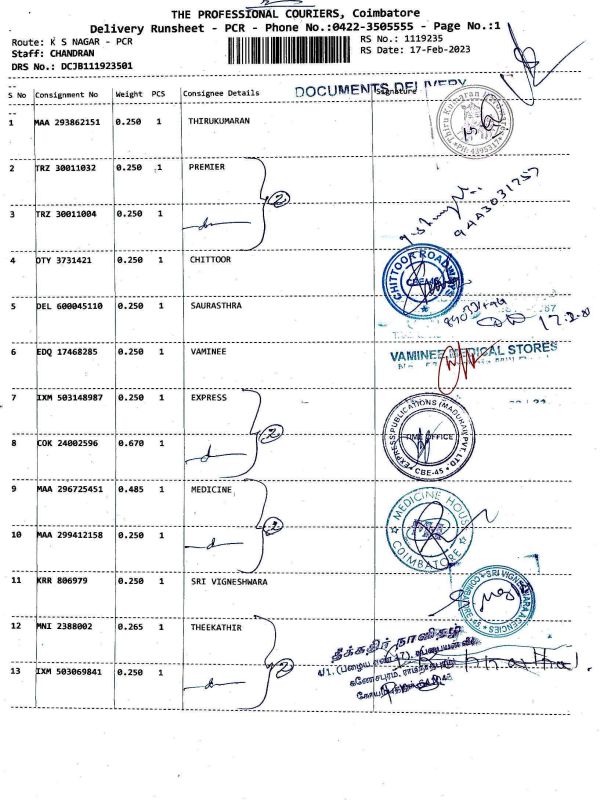 THE PROFESSIONAL COURIERS, Coimbatore
Delivery Runsheet - PCR - Phone No.:0422-3505555 - Page No.:1
Route: K S NAGAR - PCR
RS No.: 1119235
Staff: CHANDRAN
RS Date: 17-Feb-2023
DRS No.: DCJB111923501
DOCUMENTS DELIVERY
S No Consignment No Weight PCS Consignee Details Signature
1 MAA 293862151 0.250 1 THIRUKUMARAN
2 TRZ 30011032 0.250 1 PREMIER
2
3 TRZ 30011004 0.250 1
9443031757
4 OTY 3731421 0.250 1 CHITTOOR
CHITTOOR ROADWAYS
CBE-45
5 DEL 600045110 0.250 1 SAURASTHRA
6 EDQ 17468285 0.250 1 VAMINEE
VAMINEE MEDICAL STORES
7 IXM 503148987 0.250 1 EXPRESS
2
EXPRESS PUBLICATIONS (MADURAI) PVT. LTD.
TIME OFFICE
CBE-45
8 COK 24002596 0.670 1
9 MAA 296725451 0.485 1 MEDICINE
2
MEDICINE HOUSE
COIMBATORE
10 MAA 299412158 0.250 1
11 KRR 806979 0.250 1 SRI VIGNESHWARA
SRI VIGNESHWARA AGENCIES
12 MNI 2388002 0.265 1 THEEKATHIR
2
தீக்கதிர் நாளிதழ்
13 IXM 503069841 0.250 1